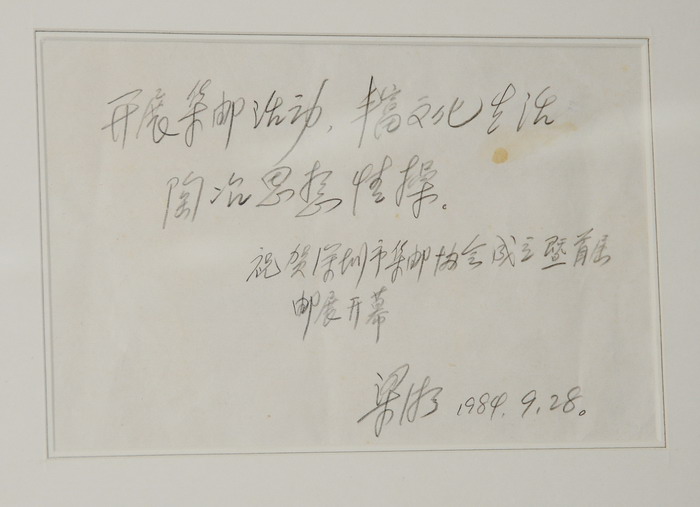 开展集邮活动,丰富文化生活
陶冶思想情操。
祝贺深圳市集邮协会成立暨首届
邮展开幕
梁湘 1984.9.28。